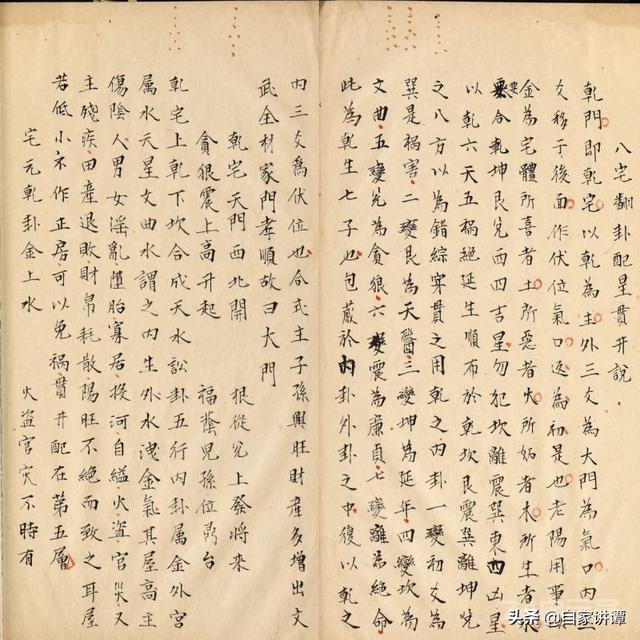 八宅翻卦配星貫井說
乾門即乾宅以乾為主外三爻為大門為氣口內三
爻移于後面作伏位氣口返為初是也老陽用事與
金為宅體所喜者土所惡者火所妬者木所生者水
要合乾坤艮兌西四吉星勿犯坎離震巽東四凶星
以乾六天五禍絕延生順布於乾坎艮震巽離坤兌
之八方以為錯綜穿貫之用乾之內卦一變初爻為
巽是禍害二變艮為天醫三變坤為延年四變坎為
文曲五變兌為貪狼六變震為廉貞七變離為絕命
此為乾生七子也包蔵於內卦外卦之中復以乾之
內三爻為伏位也合式主子孫興旺財產多增出文
武全材家門孝順故曰大門
乾宅天門西北開 根從兌上發將來
貪狼震上高升起 福蔭兒孫位鼎台
乾宅上乾下坎合成天水訟卦五行內卦属金外宮
属水天星文曲水謂之內生外水洩金氣其屋高主
傷陰人男女淫亂墮胎寡居投河自縊火盜官災又
主殘疾田產退敗財帛耗散陽旺不絕而致之耳屋
若低小不作正房可以免禍貫井配在第五層
宅元乾卦金上水 火盜官災不時有
头条 @自家讲谭